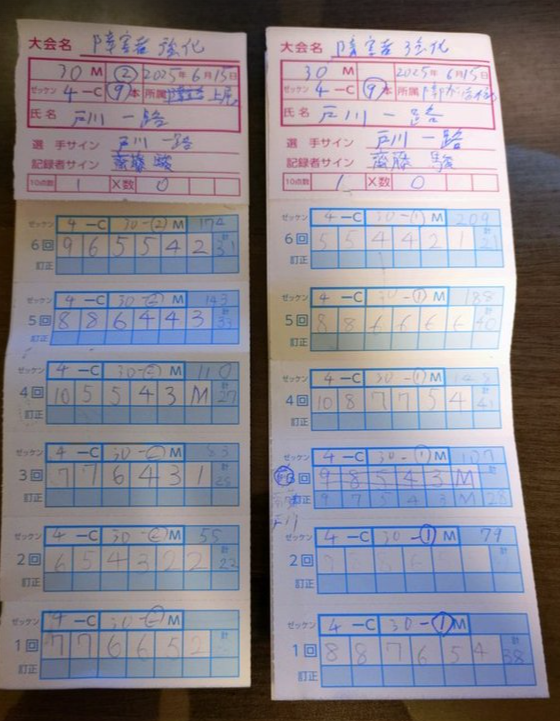 大会名 障害者 強化
30 M ② 2025年 6月15日
ゼッケン 4-C ⑨本 所属 上尾
氏名 戸川 一路
選手サイン 戸川 一路
記録者サイン 斎藤 駿
10点数 1 X数 0
ゼッケン 4-C 30-(2) M 174
6回 9 6 5 5 4 2 計 31
訂正
ゼッケン 4-C 30-② M 143
5回 8 8 6 4 4 3 計 33
訂正
ゼッケン 4-C 30-② M 110
4回 10 5 5 4 3 M 計 27
訂正
ゼッケン 4-C 30-② M 83
3回 7 7 6 4 3 1 計 28
訂正
ゼッケン 4-C 30-② M 55
2回 6 5 4 3 2 2 計 22
訂正
ゼッケン 4-C 30-② M
1回 7 7 6 6 5 2 計
訂正
大会名 障害者 強化
30 M 2025年 6月15日
ゼッケン 4-C ⑨本 所属
氏名 戸川 一路
選手サイン 戸川 一路
記録者サイン 齋藤 駿
10点数 1 X数 0
ゼッケン 4-C 30-(1) M 209
6回 5 5 4 4 2 1 計 21
訂正
ゼッケン 4-C 30-① M 188
5回 8 8 6 6 6 6 計 40
訂正
ゼッケン 4-C 30-① M 148
4回 10 8 7 7 5 4 計 41
訂正
ゼッケン 4-C 30-① M 107
3回 9 8 5 4 3 M 計
訂正 9 7 5 4 3 M 28
戸川
ゼッケン 4-C 30-① M 79
2回 計
訂正
ゼッケン 4-C 30-① M
1回 8 8 7 6 5 4 計 38
訂正